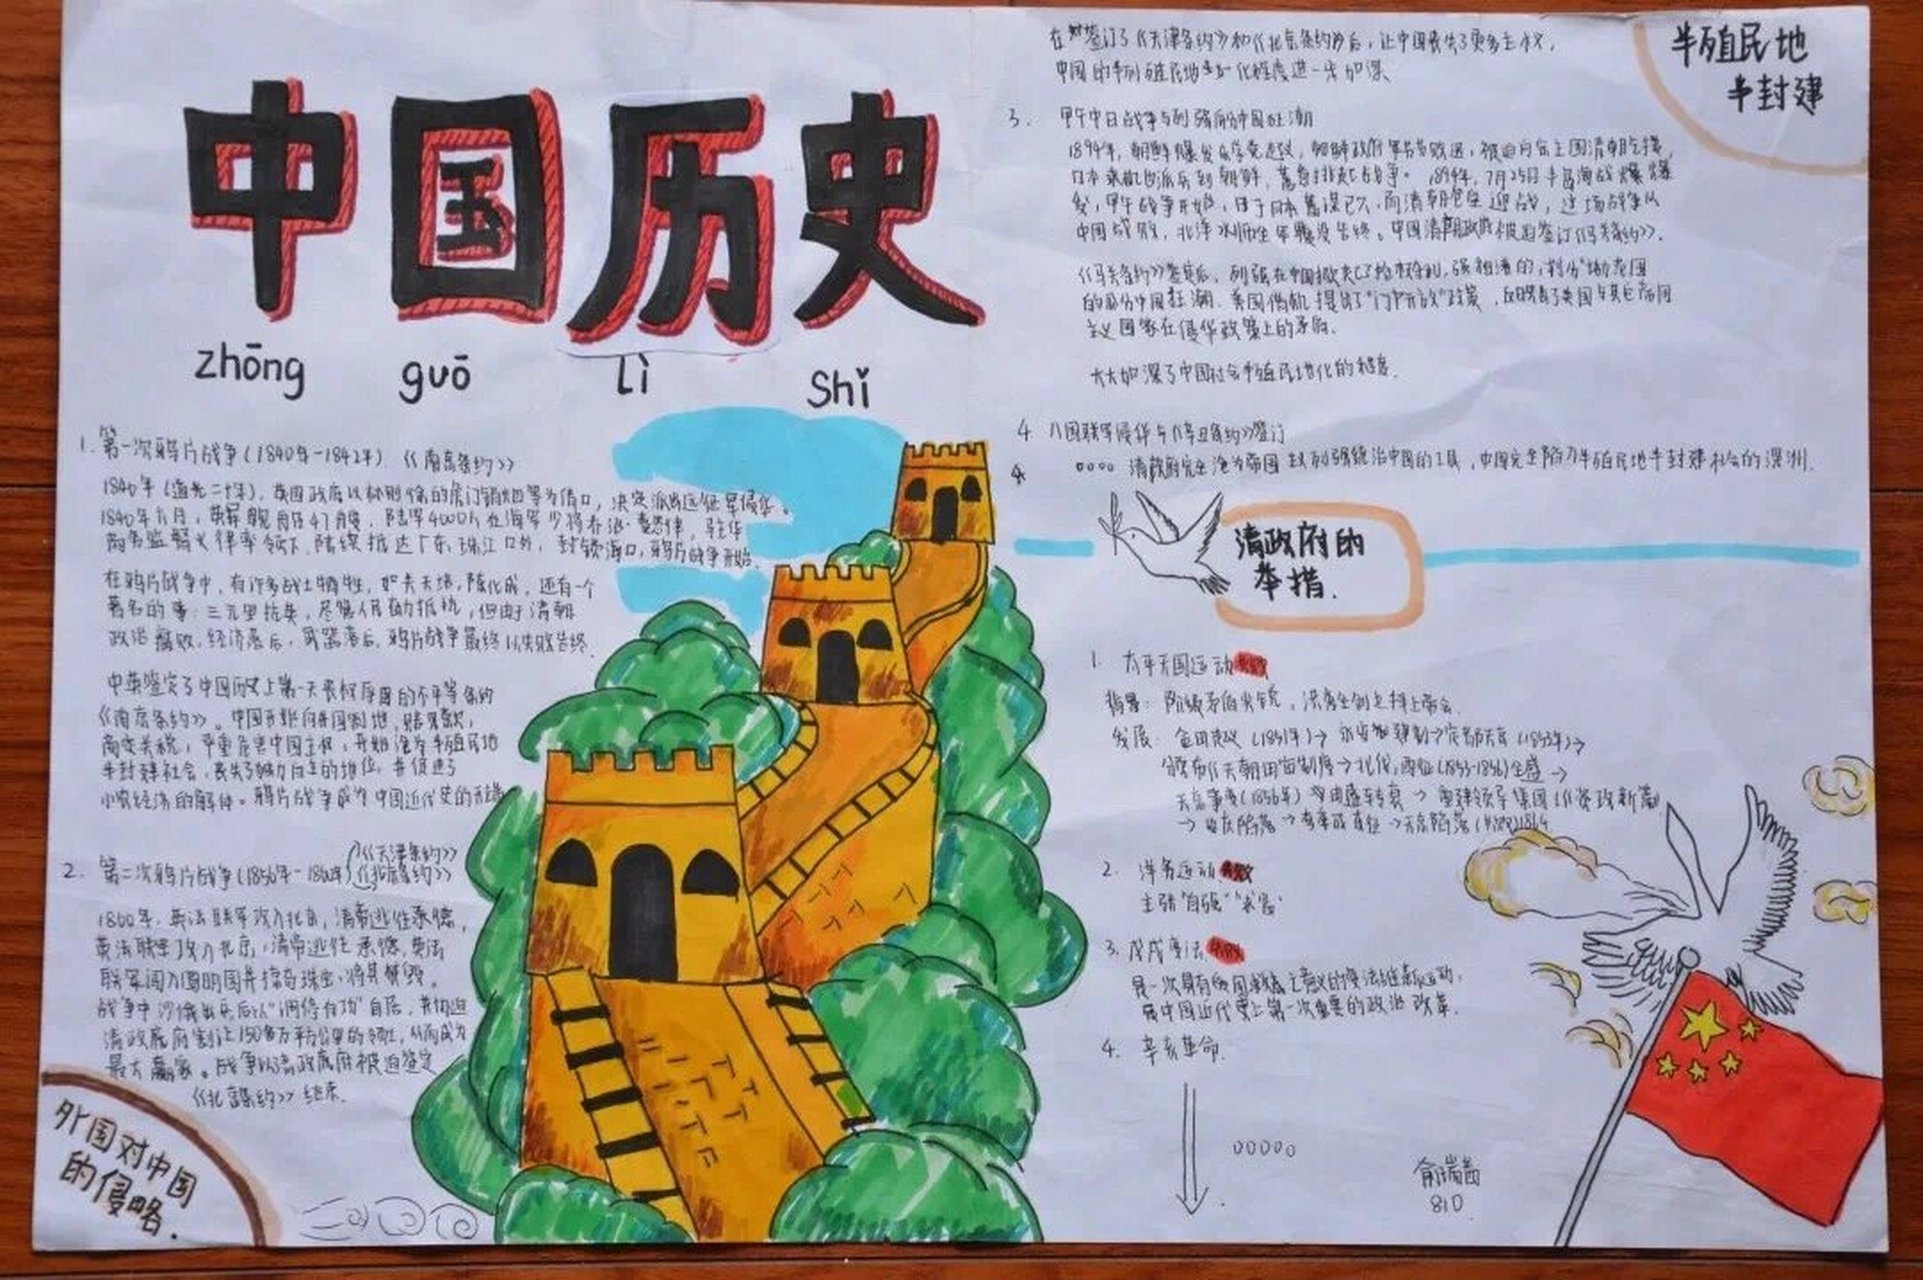 中国历史
zhōng guó Lì Shǐ
1. 第一次鸦片战争(1840年-1842年) 《南京条约》
1840年(道光二十年),英国政府以林则徐的虎门销烟等为借口,决定派出远征军侵华。
1840年六月,英军舰船47艘,陆军4000人在海军少将
商务监督义律率领下,陆续抵达广东珠江口外,封锁海口,鸦片战争开始。
在鸦片战争中,有许多战士牺牲,如关天培,陈化成,还有一个
著名的事:三元里抗英,尽管人民奋勇抵抗,但由于清朝
政治腐败,经济落后,武器落后,鸦片战争最终以失败告终。
中英签定了中国历史上第一个丧权辱国的不平等条约
《南京条约》。中国开始向外国割地、赔款、
商定关税,严重危害中国主权,开始沦为半殖民地
半封建社会,丧失了独立自主的地位,并促进了
小农经济的解体。鸦片战争成为中国近代史的开端
2. 第二次鸦片战争(1856年-1860年) 《天津条约》《北京条约》
1860年,英法联军攻入北京,清帝逃往承德,
英法联军攻入北京,清帝逃往承德,英法
联军闯入圆明园并掠夺珠宝,将其焚毁。
战争中沙俄出兵后以"调停有功"自居,并胁迫
清政府割让150多万平方公里的领土,从而成为
最大赢家。战争以清政府被迫签定
《北京条约》结束.
外国对中国的侵略.
在签订了《天津条约》和《北京条约》后,让中国丧失了更多主权,
中国的半殖民地化程度进一步加深、
3. 甲午中日战争与列强瓜分中国狂潮
1894年,朝鲜爆发东学党起义,朝鲜政府军节节败退,被迫向宗主国清朝乞援,
日本乘机也派兵到朝鲜,蓄意挑起战争。1894年,7月25日丰岛海战爆
发,甲午战争开始,由于日本蓄谋已久,而清朝仓皇迎战,这场战争以
中国战败,北洋水师全军覆没告终。中国清朝政府被迫签订《马关条约》.
《马关条约》签定后,列强在中国掀起了抢夺利,强租港湾,划分势力范围
的瓜分中国狂潮.美国伺机提出了"门户开放"政策,反映了美国与其它帝国
主义国家在侵华政策上的矛盾.
大大加深了中国社会半殖民地化的程度.
4. 八国联军侵华与《辛丑条约》签订
清政府完全沦为帝国主义列强统治中国的工具,中国完全陷入半殖民地半封建社会的深渊.
半殖民地
半封建
清政府的
举措.
1. 太平天国运动 失败
背景: 阶级矛盾尖锐,洪秀全创立拜上帝会.
发展: 金田起义(1851年)→永安建制→定都天京(1853年)→
颁布《天朝田亩制度》→北伐,西征(1853-1856)全盛→
天京事变(1856年) →重建领导集团《资政新篇》
→安庆陷落→→天京陷落(失败)1864
2. 洋务运动 失败
主张"自强""求富"
3. 戊戌变法 失败
是一次具有爱国救亡意义的变法维新运动,
是中国近代史上第一次重要的政治改革.
4. 辛亥革命.
俞瑞茜
810